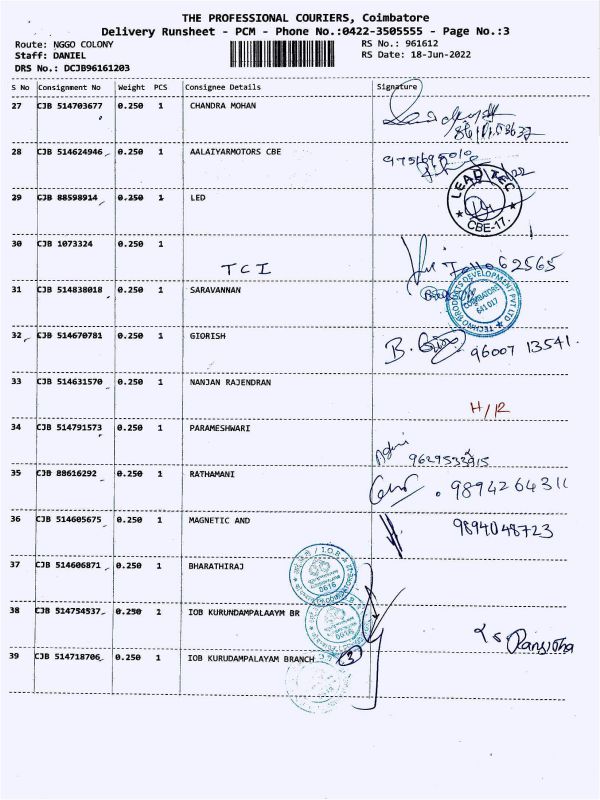 THE PROFESSIONAL COURIERS, Coimbatore
Delivery Runsheet - PCM - Phone No.:0422-3505555 - Page No.:3
Route: NGGO COLONY
RS No.: 961612
Staff: DANIEL
RS Date: 18-Jun-2022
DRS No.: DCJB96161203
S No Consignment No Weight PCS Consignee Details Signature
27 CJB 514703677 0.250 1 CHANDRA MOHAN
28 CJB 514624946 0.250 1 AALAIYARMOTORS CBE
29 CJB 88598914 0.250 1 LED
LEAD TEC
CBE-17.
30 CJB 1073324 0.250 1
TCI
62565
31 CJB 514838018 0.250 1 SARAVANNAN
TECHNO PRODUCTS DEVELOPMENT PVT LTD
COIMBATORE
641 017
32 CJB 514670781 0.250 1 GIORISH
B. 96007 13541.
33 CJB 514631570 0.250 1 NANJAN RAJENDRAN
H/R
34 CJB 514791573 0.250 1 PARAMESHWARI
35 CJB 88616292 0.250 1 RATHAMANI
9894264311
36 CJB 514605675 0.250 1 MAGNETIC AND
9894048723
37 CJB 514606871 0.250 1 BHARATHIRAJ
I.O.B
0616
38 CJB 514754537 0.250 1 IOB KURUNDAMPALAAYM BR
0616
39 CJB 514718706 0.250 1 IOB KURUDAMPALAYAM BRANCH
3